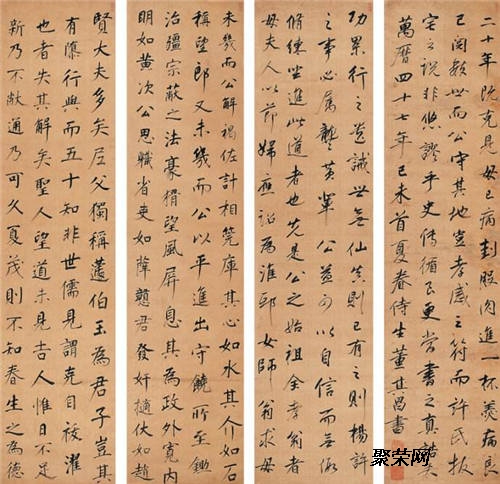 賢大夫多矣左父獨稱蘧伯玉為君子豈其
有隱行與而五十知非世儒見謂克自祓濯
也者失其解矣聖人望道未見古人惟日不足
新乃不敝通乃可久夏茂則不知春生之為德
未幾而公解褐佐計相筦庫其心如水其介如石
稱望郎又未幾而公以平進出守饒所至鋤
治彊宗蔽之法豪猾望風屏息其為政外寬內
明如黃次公思職省吏如薛贛君發奸擿伏如趙
功累行之登誠世無仙真則已有之則楊許
之事必属龔黃輩公益可以自信而無俟
脩煉坐進此道者也先是公之始祖全孝翁者
母夫人以節婦應詔為淮郢女師翁求母
二十年既克見母已病刲股肉進一杯羹病良
已閱数世而公守其地豈孝感之符而許氏拔
宅之說非悠謬乎史傳循吏尝書之真誥矣
萬曆四十七年己未首夏眷侍生董其昌書
聚荣网